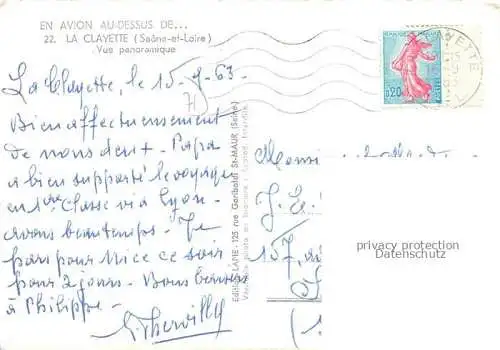 EN AVION AU-DESSUS DE...
22. LA CLAYETTE (Saône-et-Loire)
Vue panoramique
La Clayette, le 10-9-63
Bien affectueusement
de nous deux. Papa
a bien supporté le voyage
en 1ère classe via Lyon.
avons beau temps. Je
pars pour Nice ce soir
pour 2 jours. Bons baisers
à Philippe.
Editions LAPIE - 125 rue Garibaldi St-MAUR (Seine)
0,20
Monsieur
J.
107,
privacy protection
Datenschutz